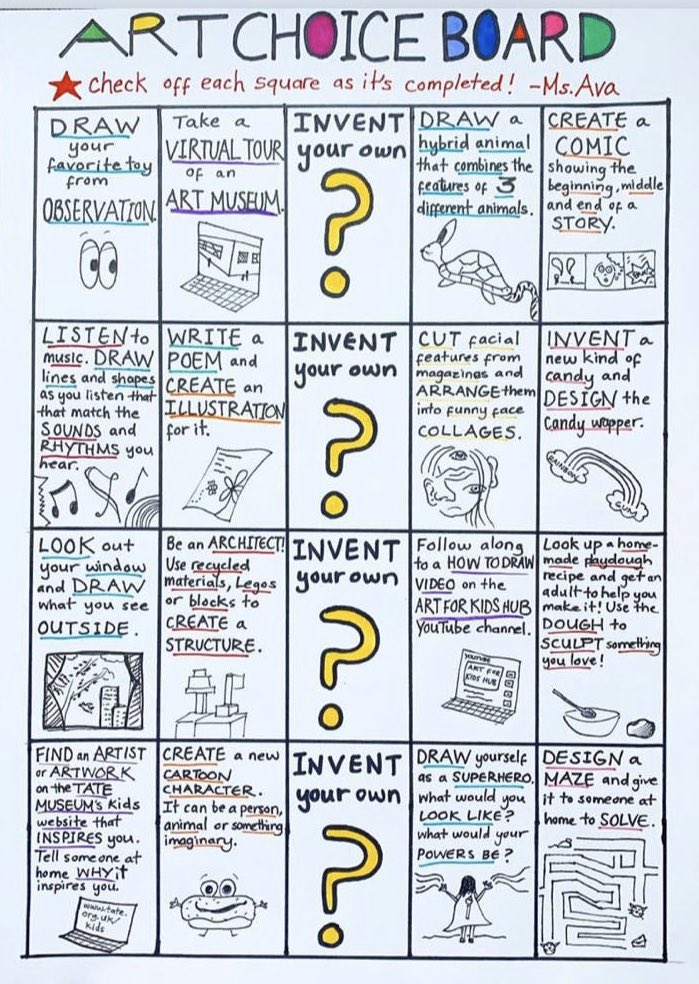 ART CHOICE BOARD
★ Check off each square as it's completed! -Ms. Ava
DRAW
your
favorite toy
from
OBSERVATION.
Take a
VIRTUAL TOUR
of an
ART MUSEUM.
INVENT
your own
?
DRAW a
hybrid animal
that combines the
features of 3
different animals.
CREATE a
COMIC
showing the
beginning, middle
and end of a
STORY.
LISTEN to
music. DRAW
lines and shapes
as you listen that
that match the
SOUNDS and
RHYTHMS you
hear.
WRITE a
POEM and
CREATE an
ILLUSTRATION
for it.
INVENT
your own
?
CUT facial
features from
magazines and
ARRANGE them
into funny face
COLLAGES.
INVENT a
new kind of
candy and
DESIGN the
Candy wrapper.
RAINBOW
GUM
LOOK out
your window
and DRAW
what you see
OUTSIDE.
Be an ARCHITECT!
Use recycled
materials, Legos
or blocks to
CREATE a
STRUCTURE.
INVENT
your own
?
Follow along
to a HOW TO DRAW
VIDEO on the
ART FOR KIDS HUB
YouTube channel.
YOUTUBE
ART FOR
KIDS HUB
Look up a home-
made playdough
recipe and get an
adult to help you
make it! Use the
DOUGH to
SCULPT something
you love!
FIND an ARTIST
or ARTWORK
on the TATE
MUSEUM's Kids
website that
INSPIRES you.
Tell someone at
home WHY it
inspires you.
www.tate.
org.uk/
kids
CREATE a new
CARTOON
CHARACTER.
It can be a person,
animal or something
imaginary.
INVENT
your own
?
DRAW yourself
as a SUPERHERO.
What would you
LOOK LIKE?
What would your
POWERS BE?
DESIGN a
MAZE and give
it to someone at
home to SOLVE.